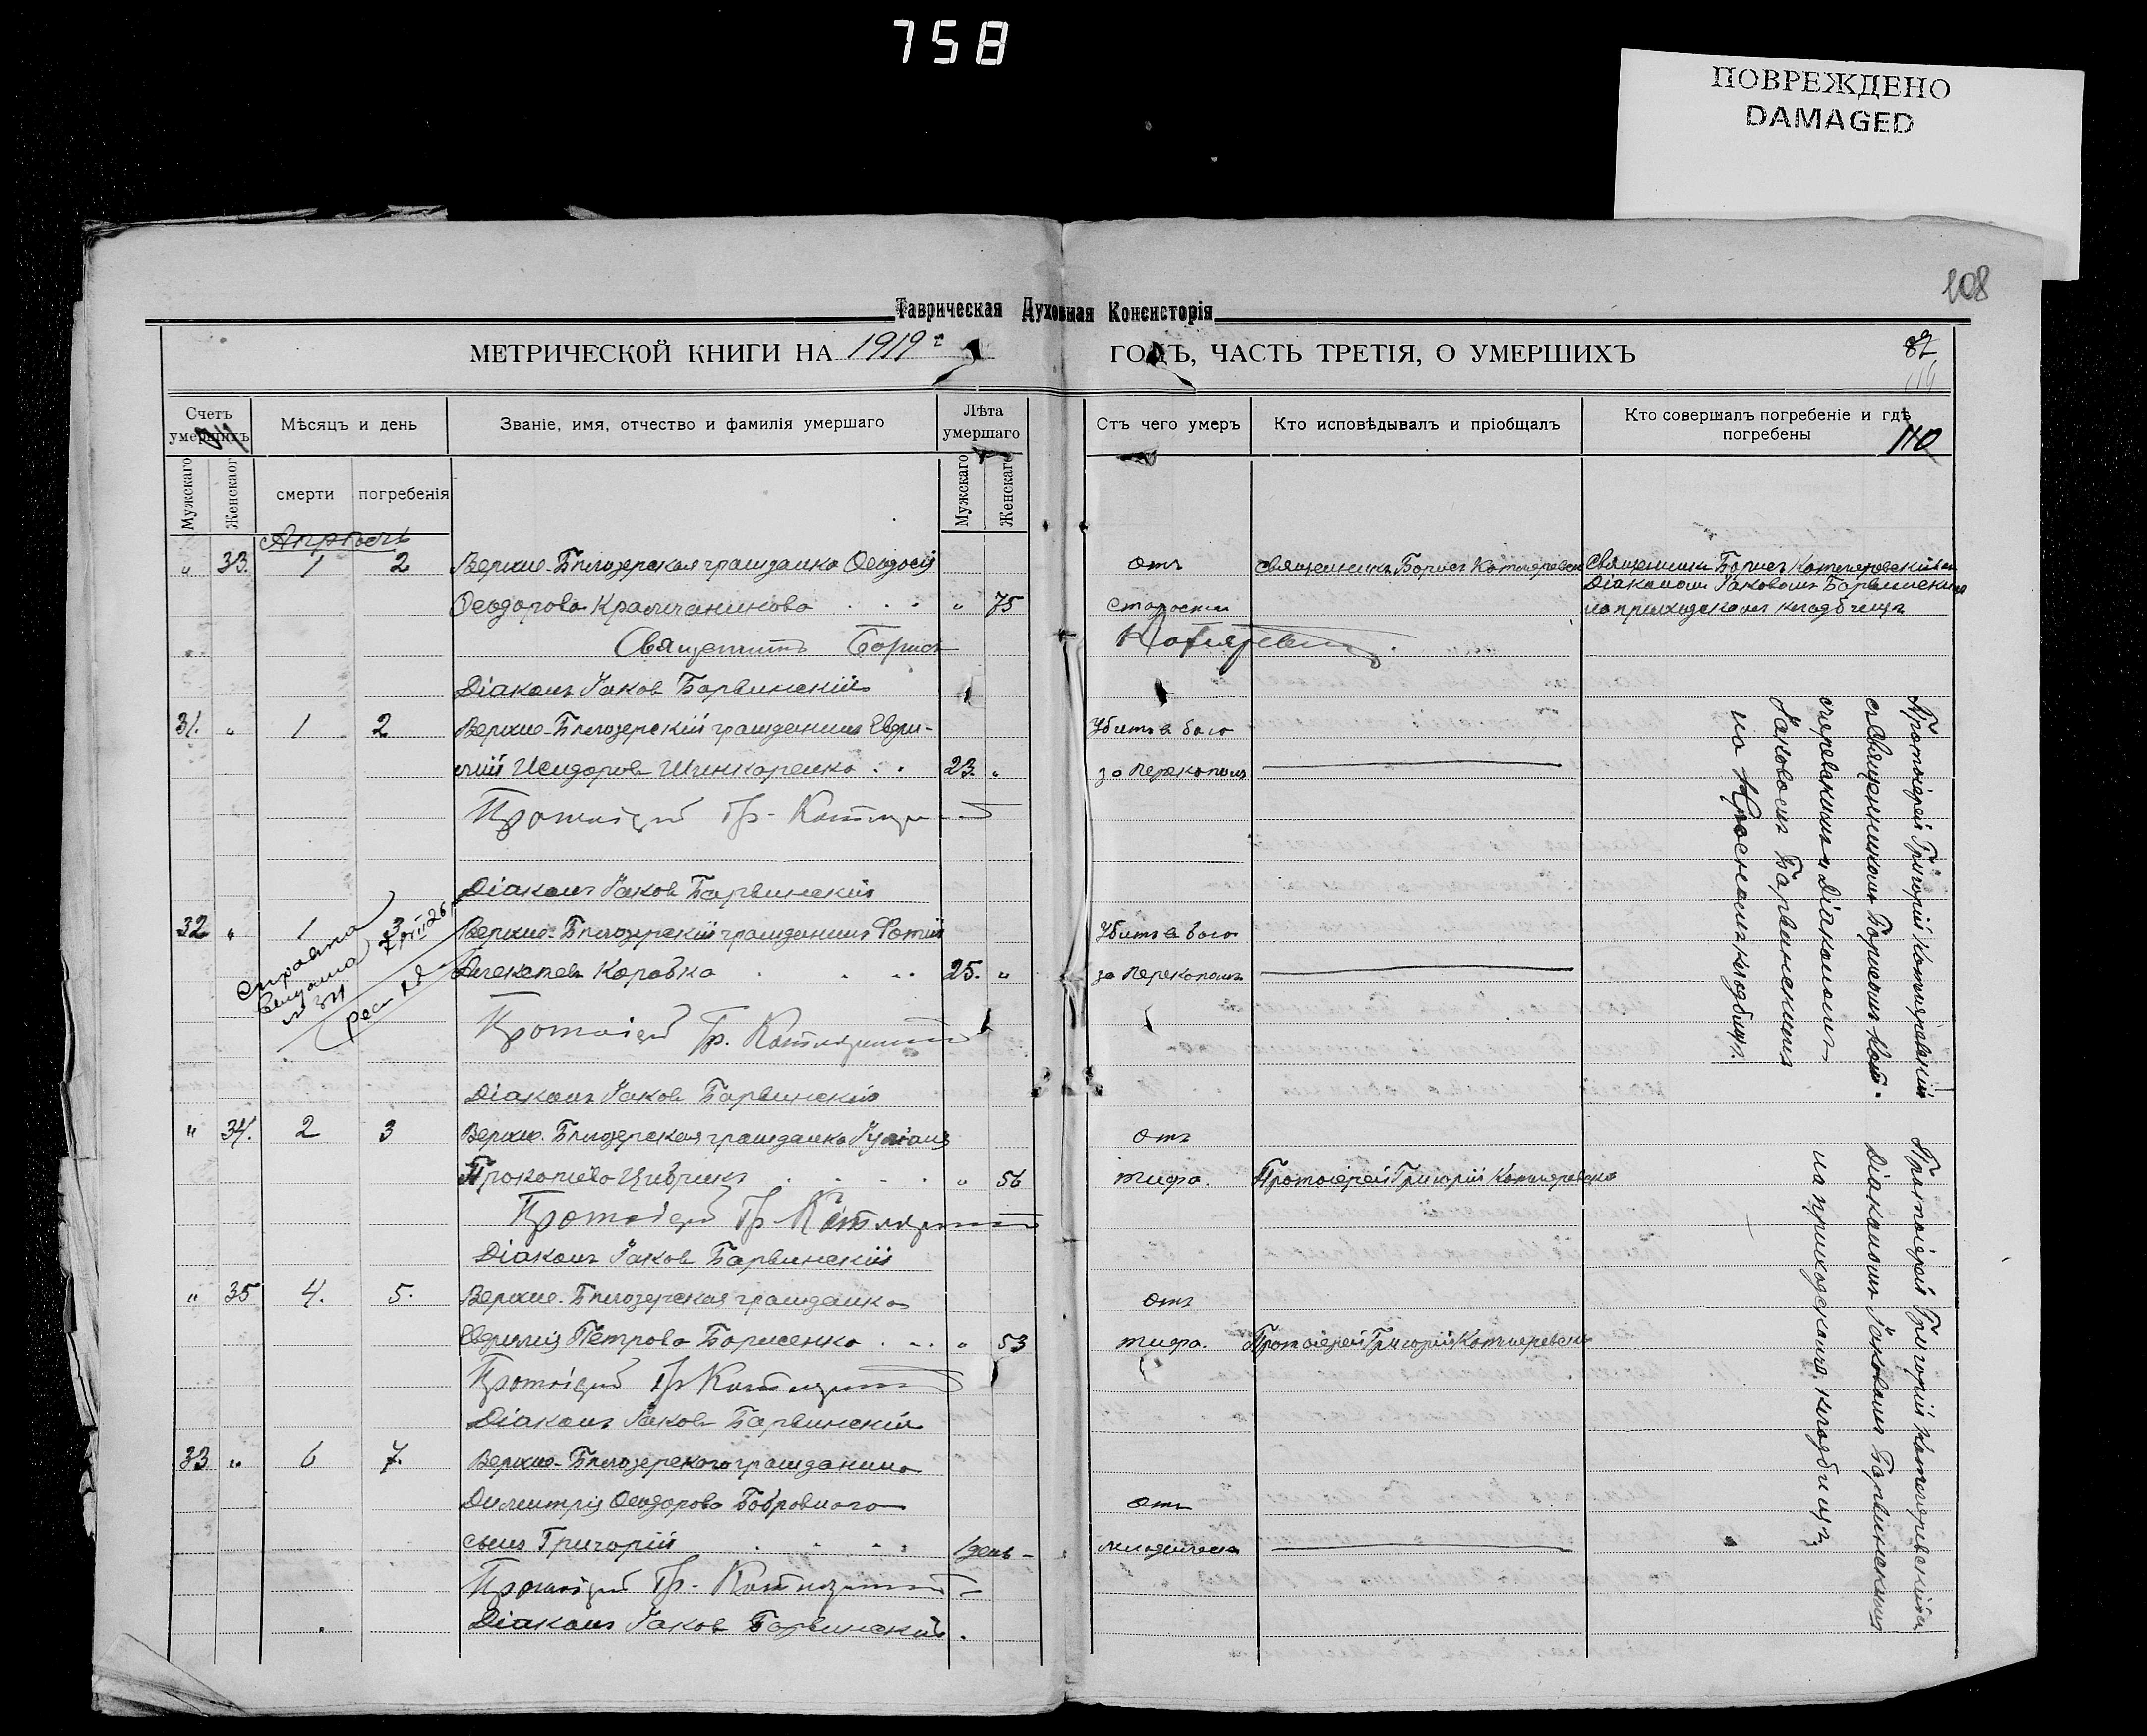 758
ПОВРЕЖДЕНО
DAMAGED
108
Таврическая Духовная Консисторія
МЕТРИЧЕСКОЙ КНИГИ НА 1919 г ГОДѢ, ЧАСТЬ ТРЕТІЯ, О УМЕРШИХЪ
87
110
Счетъ умершихъ
Мѣсяцъ и день
Званіе, имя, отчество и фамилія умершаго
Лѣта умершаго
Стъ чего умеръ
Кто исповѣдывалъ и пріобщалъ
Кто совершалъ погребеніе и гдѣ погребены
Мужскаго
Женскаго
смерти
погребенія
Мужскаго
Женскаго
Апрѣль
" 33. 1 2 Верхне-Бѣлозерская гражданка Ѳеодосія отъ Священникъ Борисъ Котляревскій Священникъ Борисъ Котляревскій съ
Діакономъ Іаковомъ Барвинскимъ
Ѳеодорова Крамчанинова " 75 старости на приходскомъ кладбищѣ
Священникъ Борисъ Котляревскій
Діаконъ Іаковъ Барвинскій
31. " 1 2 Верхне-Бѣлозерскій гражданинъ Евфи- Убитъ въ бою
мій Исидоровъ Шинкаренко 23. " за Перекопомъ
Протоіерей Гр. Котляревскій
Діаконъ Іаковъ Барвинскій
32 " 1 3 Верхне-Бѣлозерскій гражданинъ Фотій Убитъ въ бою
Алексѣевъ Коровка 25. " за Перекопомъ
справка
выдана
Протоіерей Гр. Котляревскій
Діаконъ Іаковъ Барвинскій
Протоіерей Григорій Котляревскій
съ Священникомъ Борисомъ Кот-
ляревскимъ и Діакономъ
Іаковомъ Барвинскимъ
на Красномъ кладбищѣ.
" 34. 2 3 Верхне-Бѣлозерская гражданка Іуліанія отъ
Прокопіева Цибрикъ " 56 тифа. Протоіерей Григорій Котляревскій
Протоіерей Гр. Котляревскій
Діаконъ Іаковъ Барвинскій
" 35 4. 5. Верхне-Бѣлозерская гражданка отъ
Евфимія Петрова Борисенко " 53 тифа. Протоіерей Григорій Котляревскій
Протоіерей Гр. Котляревскій
Діаконъ Іаковъ Барвинскій
33 " 6 7. Верхне-Бѣлозерского гражданина
Димитрія Ѳеодорова Бобровного отъ
сынъ Григорій 1 день - младенческ.
Протоіерей Гр. Котляревскій
Діаконъ Іаковъ Барвинскій.
Протоіерей Григорій Котляревскій съ
Діакономъ Іаковомъ Барвинскимъ
на приходскомъ кладбищѣ